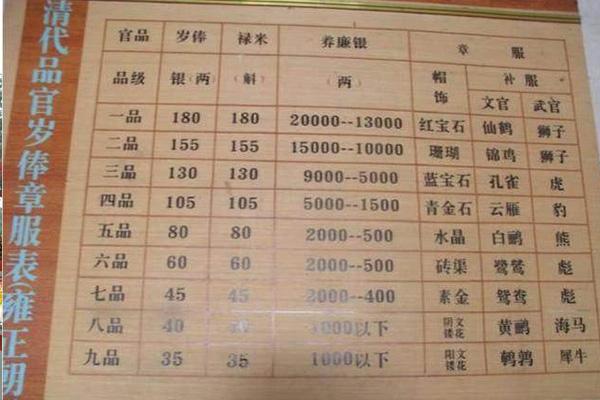 清代品官岁俸章服表(雍正朝
官品 岁俸 禄米 养廉银 章 服
品级 银(两) (斛) (两) 帽饰 补 服
文官 武官
一品 180 180 20000--13000 红宝石 仙鹤 狮子
二品 155 155 15000--10000 珊瑚 锦鸡 狮子
三品 130 130 9000--5000 蓝宝石 孔雀 虎
四品 105 105 5000--1500 青金石 云雁 豹
五品 80 80 2000--500 水晶 白鹇 熊
六品 60 60 2000--500 砖渠 鹭鸶 彪
七品 45 45 2000--400 素金 鸳鸯 彪
八品 40 40 1000以下 阴文镂花 黄鹂 海马
九品 35 35 1000以下 阳文镂花 鹌鹑 犀牛